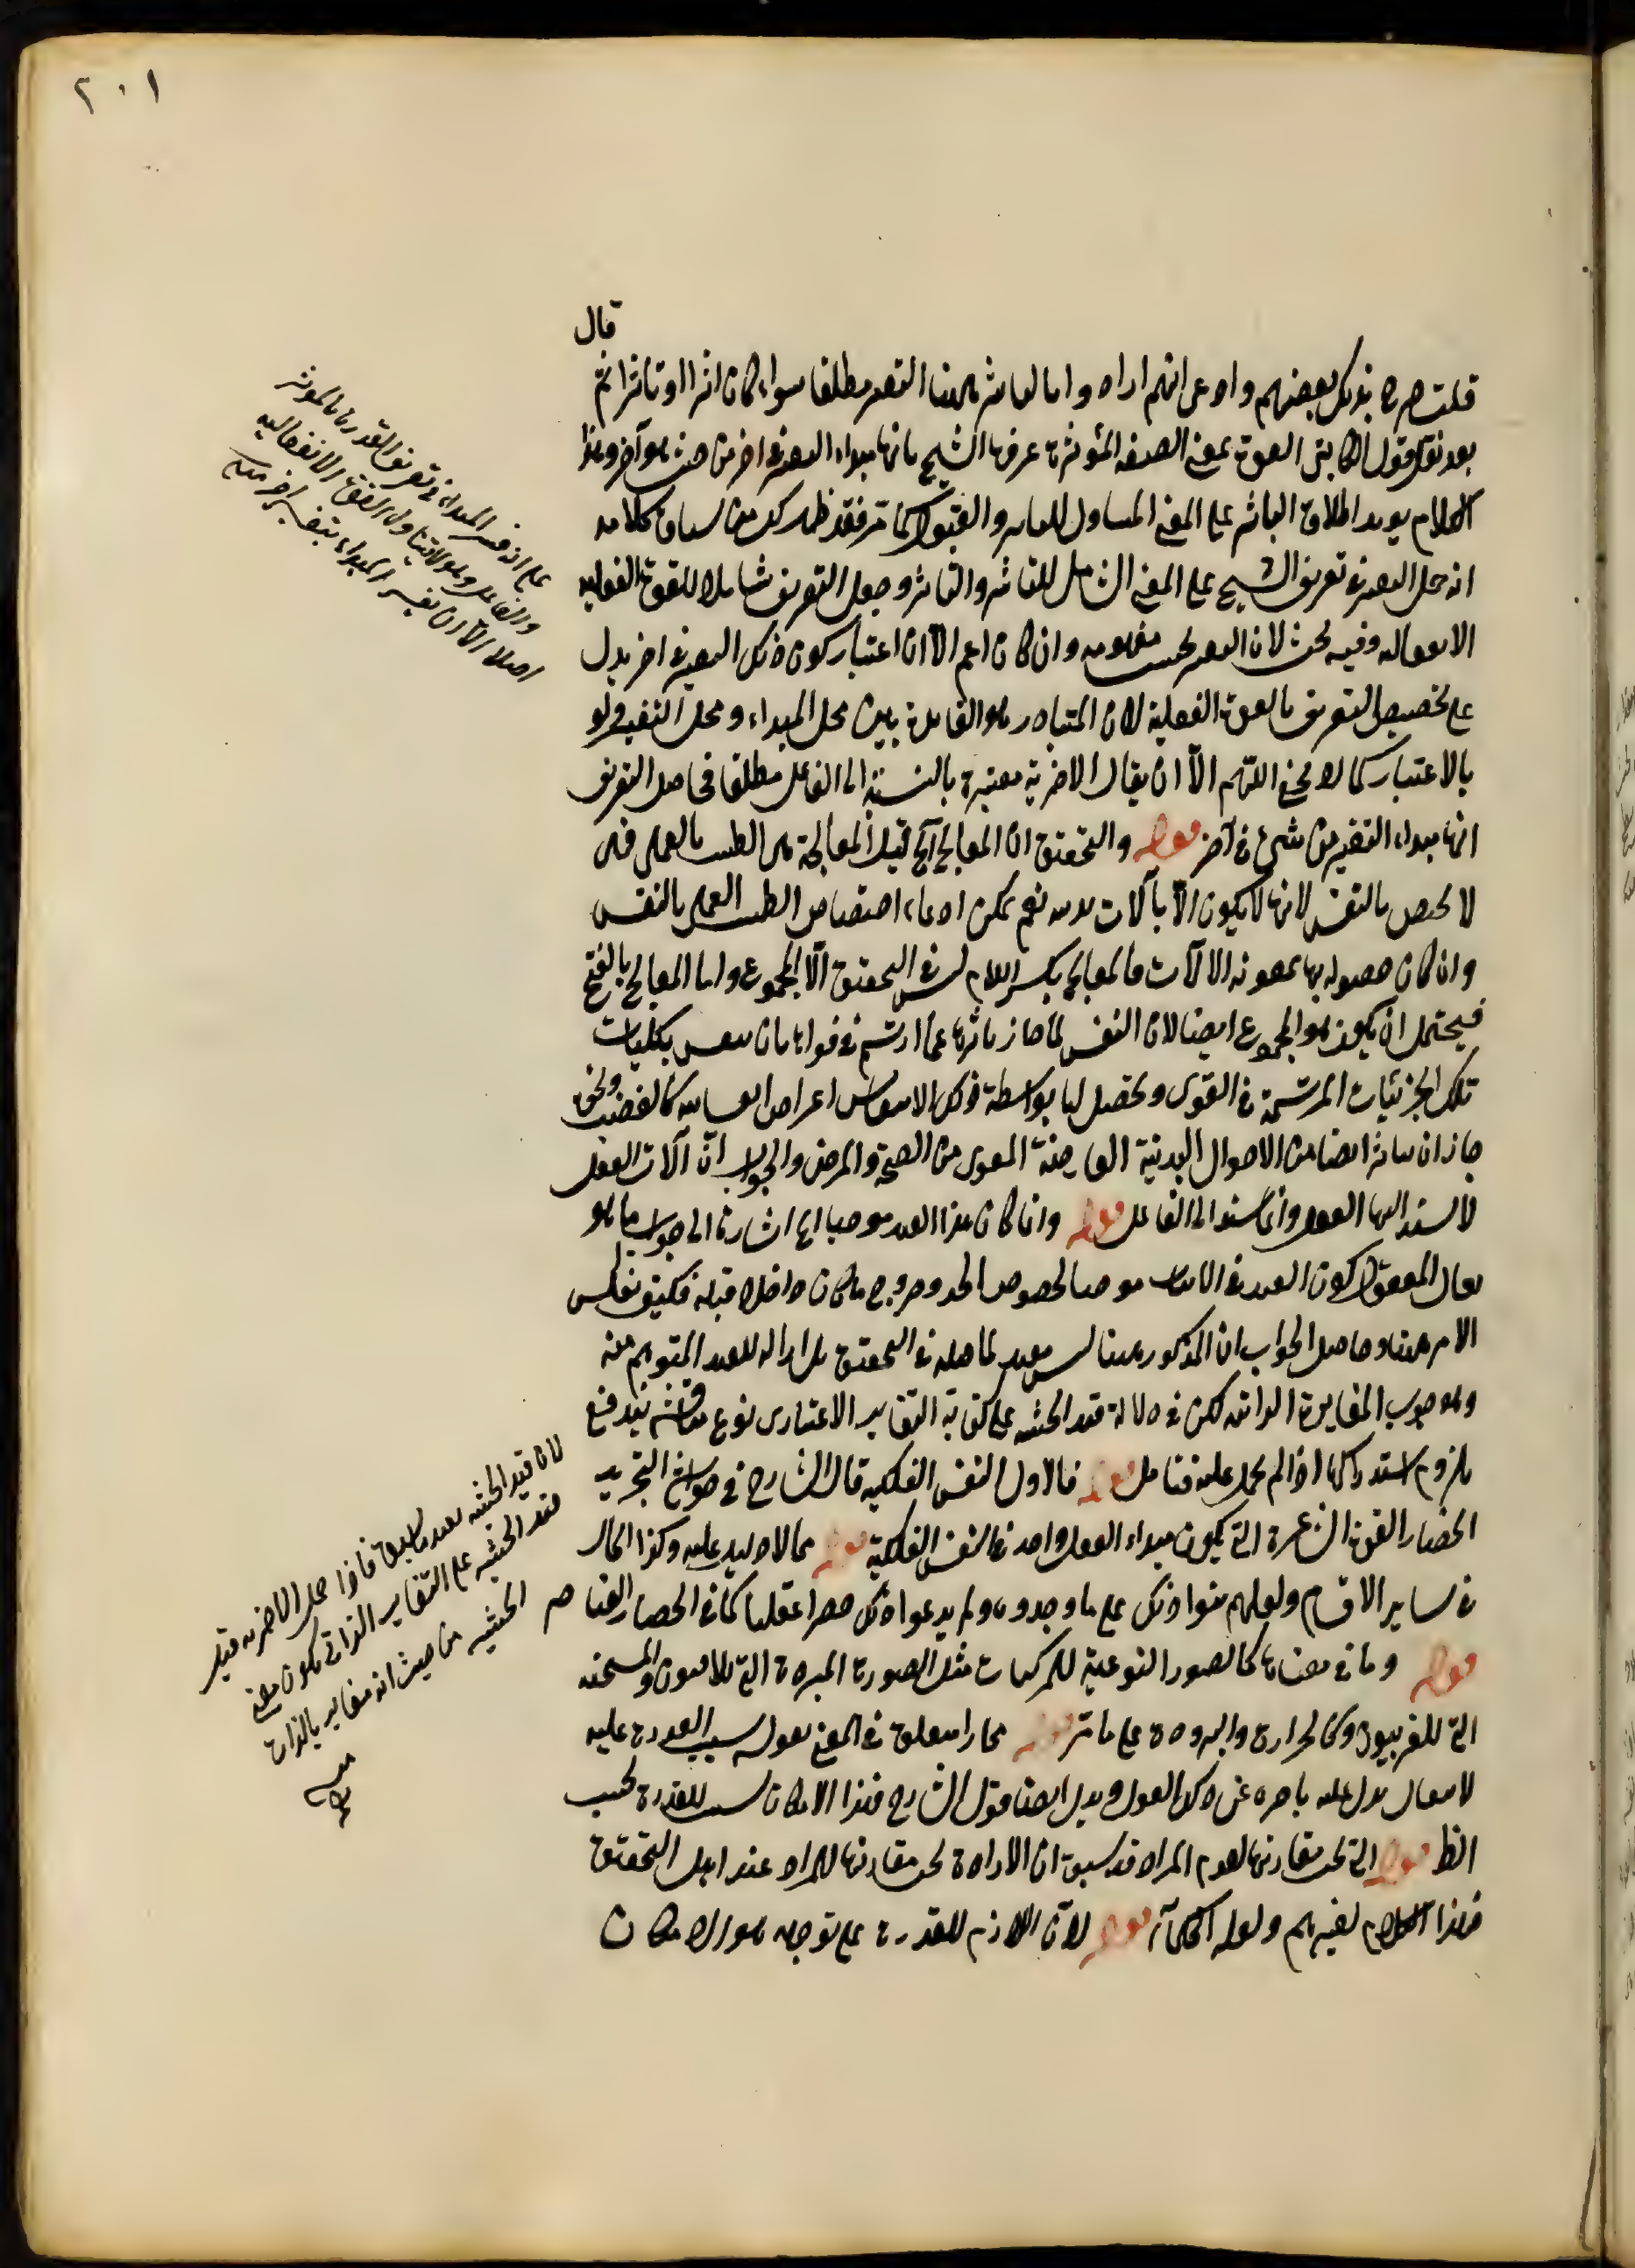 ٢٠١
قال
قلت صرح بذلك بعضهم وادعى انهم اراد وا بالتاثير ههنا التغير مطلقا سواء كان اثرا او تاثرا ثم
بعد نقل قول الكاتبى القوة بمعنى الصفة المؤثرة عرفها الشيخ بانها مبداء التغير فى اخر من حيث هو آخر وهذا
الكلام يويد اطلاق التاثير على المعنى المتناول للتاثير والقبول كما مر فقد ظهر لك من سياق كلامه
انه حمل التغير فى تعريف الشيخ على المعنى الشامل للتاثير والتاثر وجعل التعريف شاملا للقوة الفعلية
الانفعاليه وفيه بحث لان التغير بحسب مفهومه وان كان اعم الا ان اعتبار كون ذلك التغير فى اخر يدل
على تخصيص التعريف بالقوة الفعلية لان المتبادر هو المقابلة بين محل المبداء ومحل التغير ولو
بالاعتبار كما لا يخفى اللهم الا ان يقال الاخرية معتبرة بالنسبة الى الفاعل مطلقا فحاصل التعريف
انها مبداء التغير من شىء فى آخر قوله والتحقيق ان المعالج آه قيل المعالجة هى الطب العملى فهى
لا تختص بالنفس لانها لا يكون الا بآلات بدنيه نعم يمكن ادعاء اختصاص الطب العلمى بالنفس
وان كان حصوله بها بمعونة الالات فالمعالج بكسر اللام ليس فى التحقيق الا المجموع واما المعالج بالفتح
فيحتمل ان يكون هو المجموع ايضا لان النفس لما جاز تاثرها عما ارتسم فى قواها بان تنتقش بكليات
تلك الجزئيات المرتسمة فى القوى وتحصل لها بواسطة ذلك الانتقاش اعراض نفسانيه كالغضب ونحوه
جاز ان يتاثر ايضا من الاحوال البدنية العارضة للقوى من الصحة والمرض والجواب ان آلات الفعل
لا يسند اليها الفعل وانما يسند الى الفاعل قوله وانما كان هذا القيد موجبا اه اشارة الى جواب ما هو
يقال المعقول كون القيد فى الاثبات موجبا لخصوص الحد وخروج ما كان داخلا قبله فكيف يعكس
الامر ههنا وحاصل الجواب ان المذكور ههنا ليس بقيد لما قبله فى التحقيق بل ازاله للقيد المتوهم منه
وهو وجوب المغايرة الذاتيه لكن فى دلالة قيد الحيثيه على كفاية التغاير الاعتبارى نوع مناقشة يندفع
بلزوم استدراكها اذا لم يحمل عليه فتامل قوله فالاول النفس الفلكيه قال الشارح فى حواشى التجريد
انحصار القوة الشاعرة التى يكون مبداء الفعل واحد فى النفس الفلكية قوله مما لا دليل عليه وكذا الحال
فى ساير الاقسام ولعلهم بنوا ذلك على ما وجدوه ولم يدعوا ذلك حصرا عقليا كما فى انحصار العناصر
قوله وما فى معناها كالصور النوعية للمركبات مثل الصورة المبردة التى للافيون والمسخنه
التى للفربيون وكالحرارة والبرودة على ما مر قوله مختارا متعلق فى المعنى بقوله سبب القدرة عليه
لا يقال يدل عليه تاخره عن ذلك القول ويدل ايضا قول الشارح فهذا الامكان سبب للقدرة بحسب
الظ قوله التى تجب مقارنتها لعدم المراد قد سبق ان الارادة تجب مقارنتها للمراد عند اهل التحقيق
فهذا الكلام لغيرهم ولعله الحكماء قوله لان اللازم للقدرة على توجيهه هو الامكان
على انه فسر المبداء فى تعريف القدرة بالمؤثر
والفاعل وهو لا يتناول القوة الانفعاليه
اصلا الا ان يفسر المبداء بتفسير اخر منه
لان قيد الحيثيه بعد ما سبق فاذا حمل الاخريه قبل
قيد الحيثيه على التغاير الذاتى يكون معنى
الحيثيه من حيث انه مغاير بالذات
منه